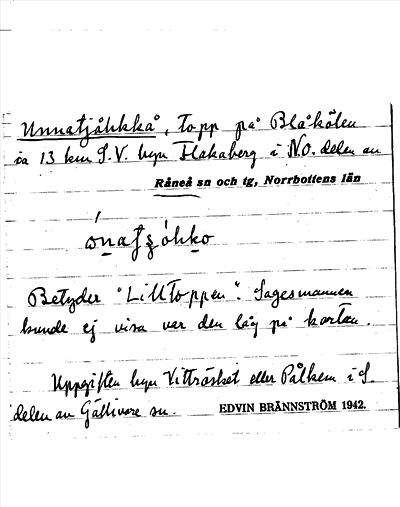 Unnatjåhkkå, topp på Blåkölen
ca 13 km S.V. byn Flakaberg i N.O. delen av
Råneå sn och tg, Norrbottens län
ó̱natʒ́óhko̱
Betyder "Lilltoppen". Sagesmannen
kunde ej visa var den låg på kartan.
Uppgiften byn Vitträsket eller Pålkem i S.
delen av Gällivare sn. EDVIN BRÄNNSTRÖM 1942.